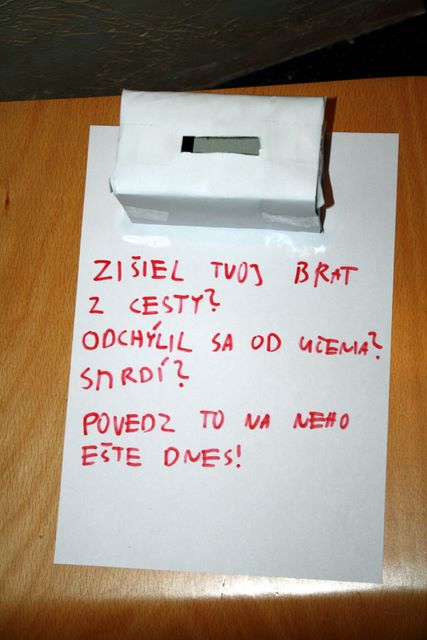 ZIŠIEL TVOJ BRAT
Z CESTY?
ODCHÝLIL SA OD UČENIA?
SMRDÍ?
POVEDZ TO NA NEHO
EŠTE DNES!